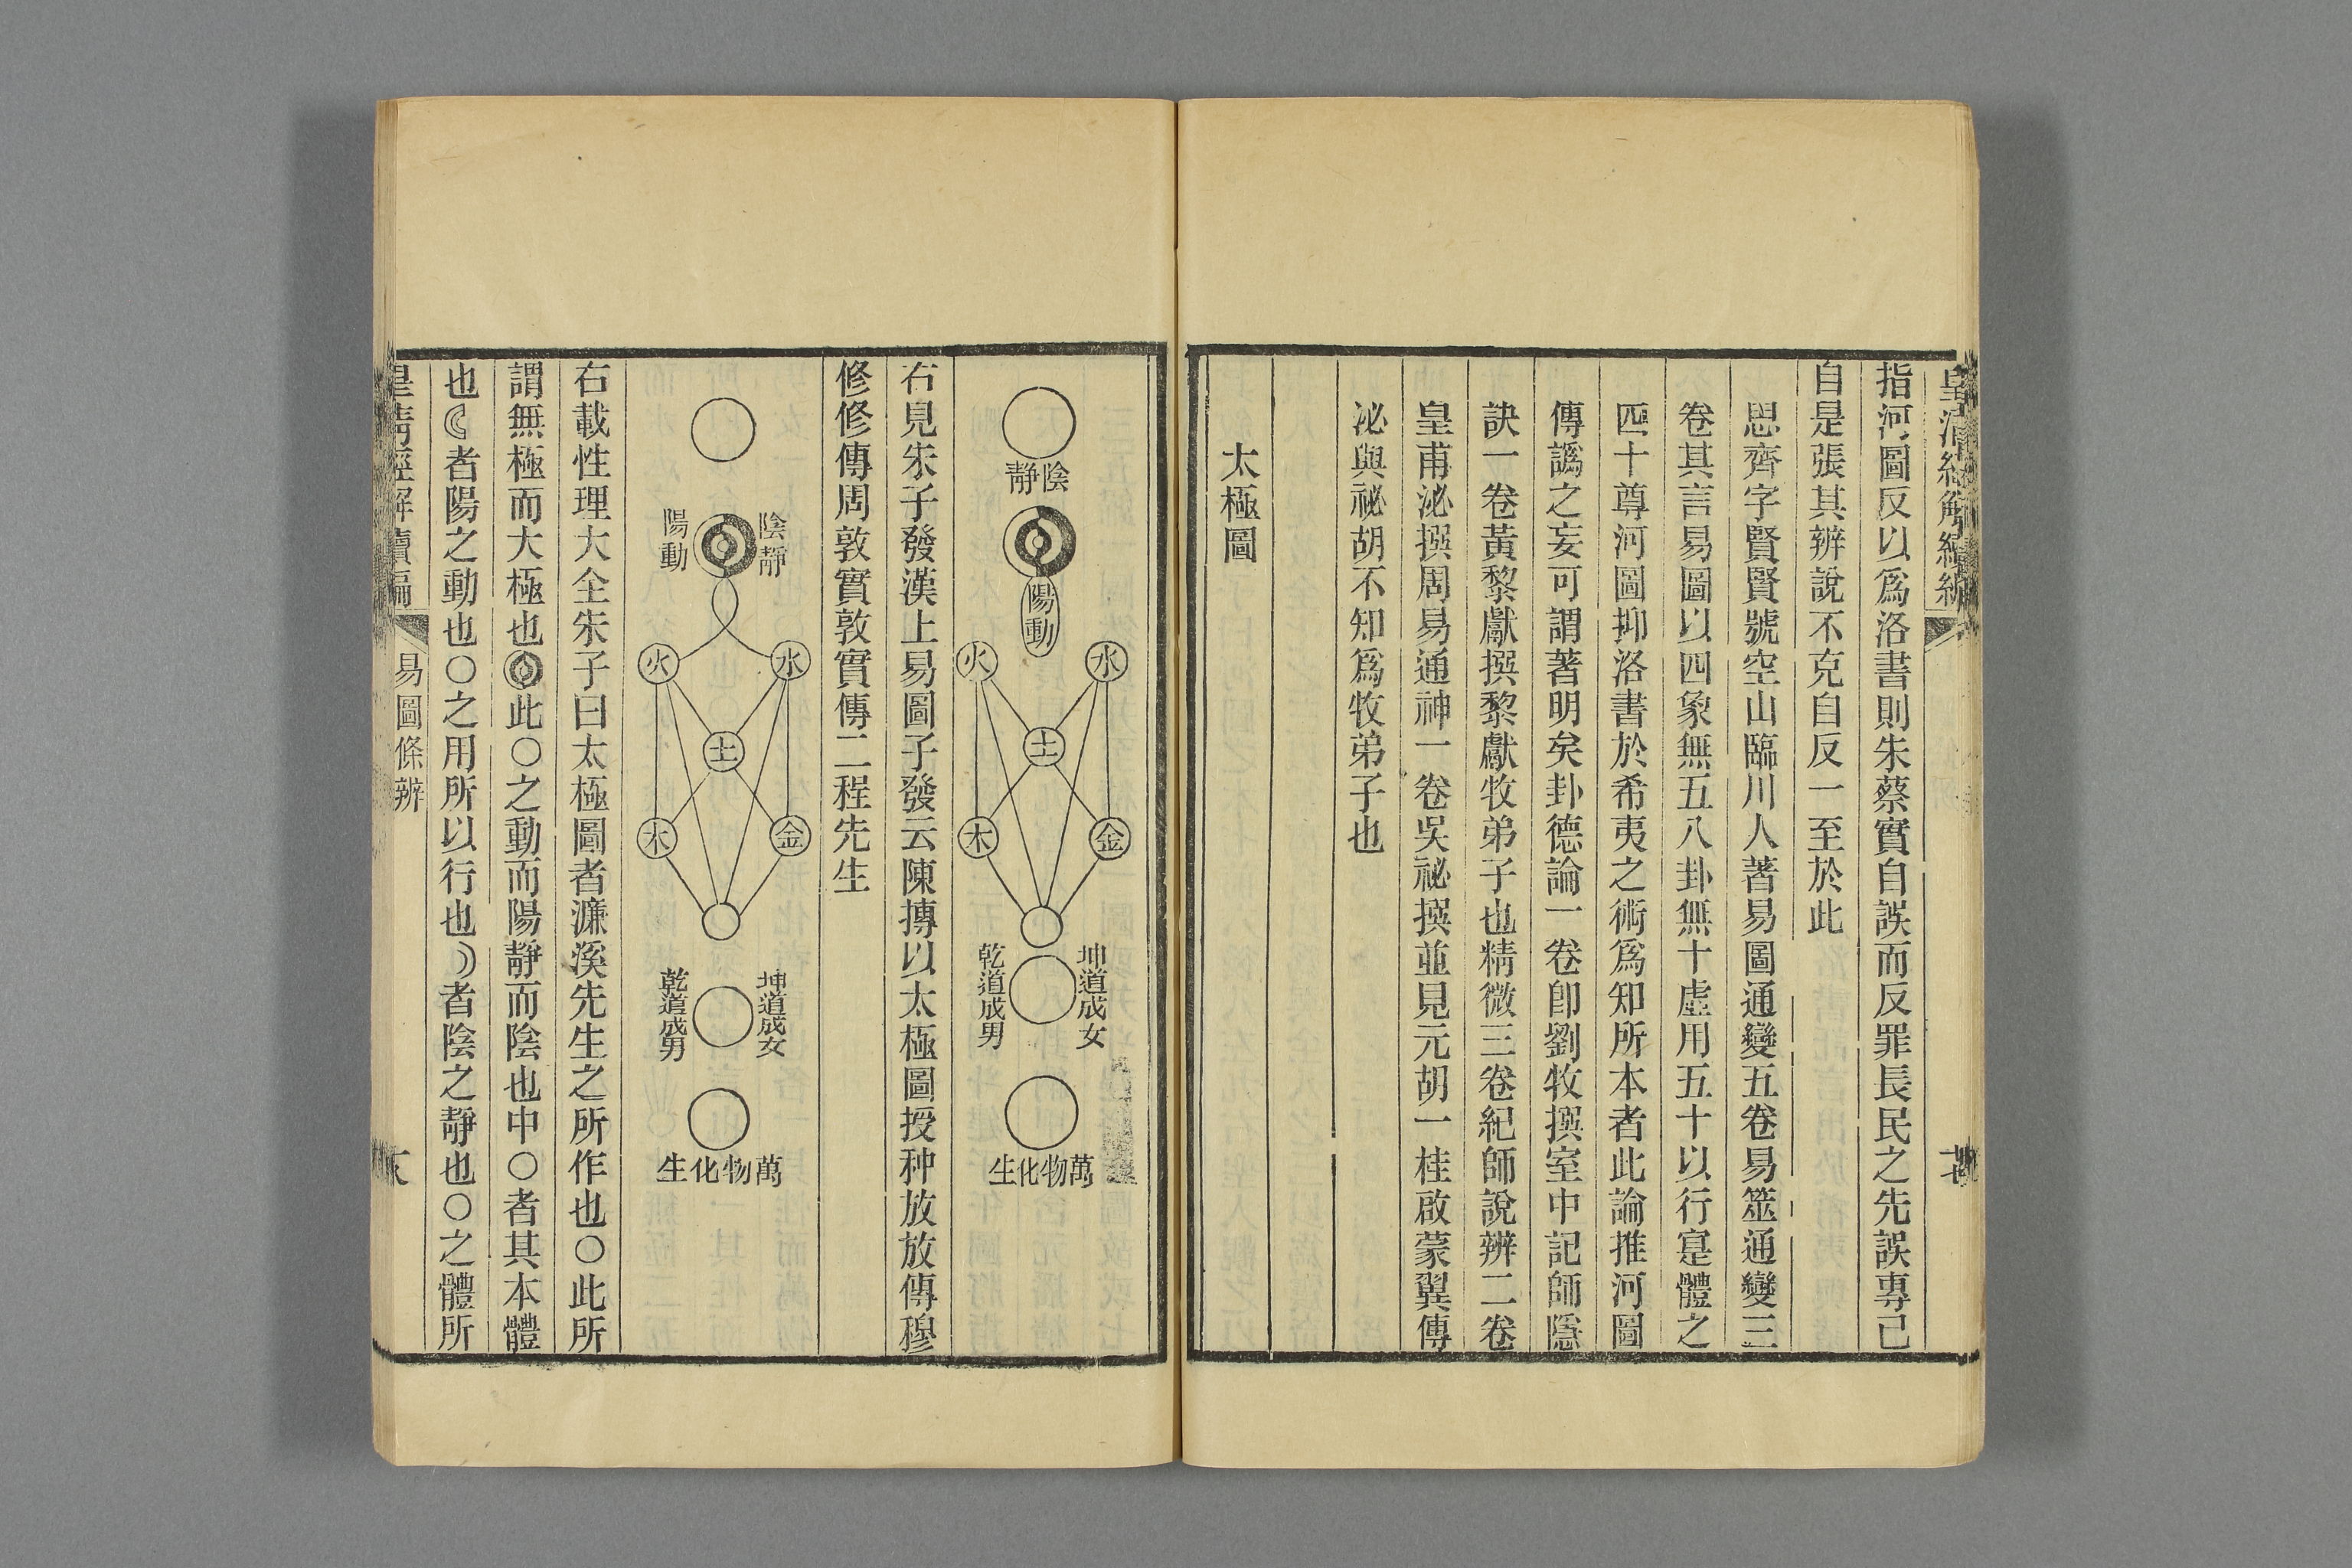 皇清經解續編
指河圖反以爲洛書則朱蔡實自誤而反罪長民之先誤專己
自是張其辨說不克自反一至於此
思齊字賢賢號空山臨川人著易圖通變五卷易筮通變三
卷其言易圖以四象無五八卦無十虛用五十以行寔體之
四十尊河圖抑洛書於希夷之術爲知所本者此論推河圖
傳譌之妄可謂著明矣卦德論一卷卽劉牧撰室中記師隱
訣一卷黃黎獻撰黎獻牧弟子也精微三卷紀師說辨二卷
皇甫泌撰周易通神一卷吳祕撰並見元胡一桂啟蒙翼傳
泌與祕胡不知爲牧弟子也
太極圖
陰靜
陽動
水
火
土
金
木
坤道成女
乾道成男
萬物化生
右見朱子發漢上易圖子發云陳摶以太極圖授种放放傳穆
修修傳周敦實敦實傳二程先生
陰靜
陽動
水
火
土
金
木
坤道成女
乾道成男
萬物化生
右載性理大全朱子曰太極圖者濂溪先生之所作也○此所
謂無極而大極也此○之動而陽靜而陰也中○者其本體
也☾者陽之動也○之用所以行也☽者陰之靜也○之體所
皇清經解續編 易圖條辨